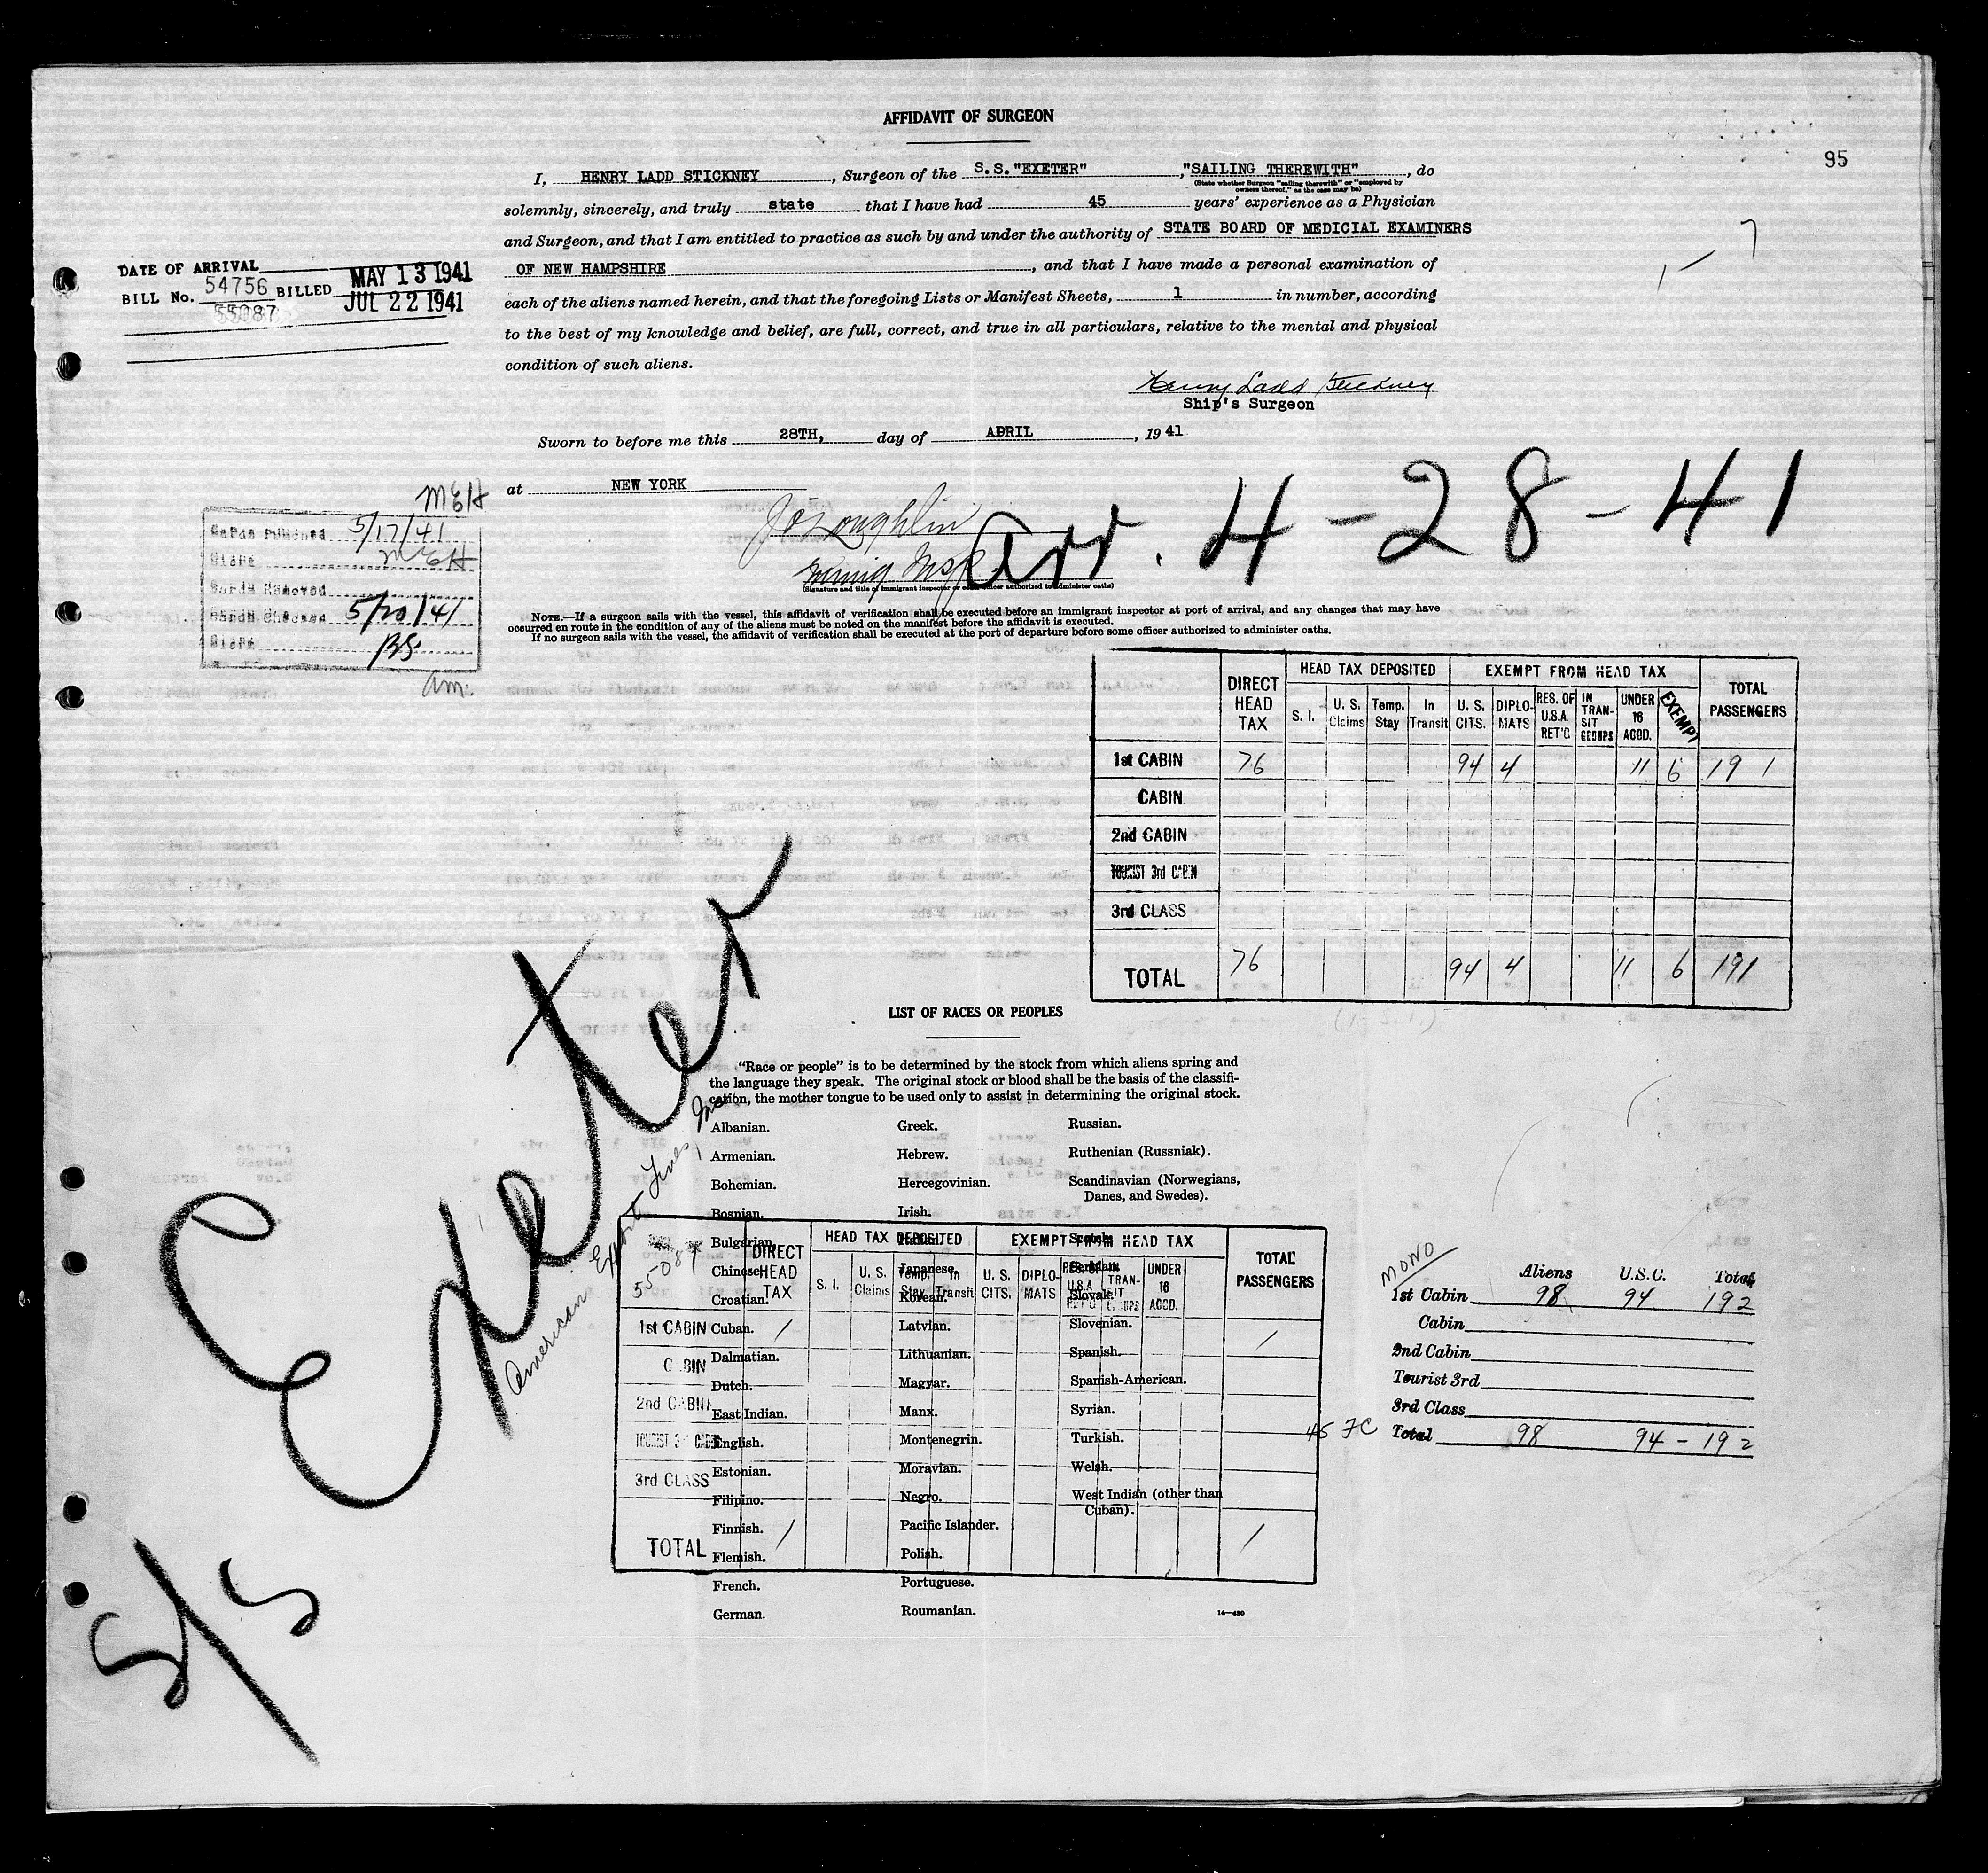 AFFIDAVIT OF SURGEON
95
I, HENRY LADD STICKNEY, Surgeon of the S.S."EXETER", "SAILING THEREWITH", do
(State whether Surgeon "sailing therewith" or "employed by
owners thereof," as the case may be)
solemnly, sincerely, and truly state that I have had 45 years' experience as a Physician
and Surgeon, and that I am entitled to practice as such by and under the authority of STATE BOARD OF MEDICIAL EXAMINERS
OF NEW HAMPSHIRE, and that I have made a personal examination of
each of the aliens named herein, and that the foregoing Lists or Manifest Sheets, 1 in number, according
to the best of my knowledge and belief, are full, correct, and true in all particulars, relative to the mental and physical
condition of such aliens.
DATE OF ARRIVAL
BILL No. 54756 BILLED MAY 13 1941
55087 JUL 22 1941
Henry Ladd Stickney
Ship's Surgeon
Sworn to before me this 28TH, day of APRIL, 1941
at NEW YORK
Immig Insp.
(Signature and title of immigrant inspector or other officer authorized to administer oaths)
arr. 4-28-41
MEH
Cards Punched 5/17/41
MEH
Cards Removed
Cards Checked 5/20/41
BS.
am.
NOTE.—If a surgeon sails with the vessel, this affidavit of verification shall be executed before an immigrant inspector at port of arrival, and any changes that may have
occurred en route in the condition of any of the aliens must be noted on the manifest before the affidavit is executed.
If no surgeon sails with the vessel, the affidavit of verification shall be executed at the port of departure before some officer authorized to administer oaths.
DIRECT HEAD TAX | HEAD TAX DEPOSITED | EXEMPT FROM HEAD TAX | TOTAL PASSENGERS
S. I. | U. S. Claims | Temp. Stay | In Transit | U. S. CITS. | DIPLO-MATS | RES. OF U.S.A. RET'G | IN TRAN-SIT GROUPS | UNDER 16 ACCD. | EXEMPT
1st CABIN 76 94 4 11 6 191
CABIN
2nd CABIN
TOURIST 3rd CABIN
3rd CLASS
TOTAL 76 94 4 11 6 191
S/S Exeter
American Export Lines, Inc.
LIST OF RACES OR PEOPLES
"Race or people" is to be determined by the stock from which aliens spring and
the language they speak. The original stock or blood shall be the basis of the classifi-
cation, the mother tongue to be used only to assist in determining the original stock.
Albanian.
Armenian.
Bohemian.
Bosnian.
Bulgarian.
Chinese.
Croatian.
Cuban.
Dalmatian.
Dutch.
East Indian.
English.
Estonian.
Filipino.
Finnish.
Flemish.
French.
German.
Greek.
Hebrew.
Hercegovinian.
Irish.
Italian.
Japanese.
Korean.
Latvian.
Lithuanian.
Magyar.
Manx.
Montenegrin.
Moravian.
Negro.
Pacific Islander.
Polish.
Portuguese.
Roumanian.
Russian.
Ruthenian (Russniak).
Scandinavian (Norwegians,
Danes, and Swedes).
Scotch.
Serbian.
Slovak.
Slovenian.
Spanish.
Spanish-American.
Syrian.
Turkish.
Welsh.
West Indian (other than
Cuban).
14—430
55087
DIRECT HEAD TAX | HEAD TAX DEPOSITED | EXEMPT FROM HEAD TAX | TOTAL PASSENGERS
S. I. | U. S. Claims | Temp. Stay | In Transit | U. S. CITS. | DIPLO-MATS | RES. OF U.S.A. RET'G | IN TRAN-SIT GROUPS | UNDER 16 ACCD.
1st CABIN 1 1
CABIN
2nd CABIN
TOURIST 3rd CABIN
3rd CLASS
TOTAL 1 1
MONO
Aliens U.S.C. Total
1st Cabin 98 94 192
Cabin
2nd Cabin
Tourist 3rd
3rd Class
45 FC
Total 98 94 - 192